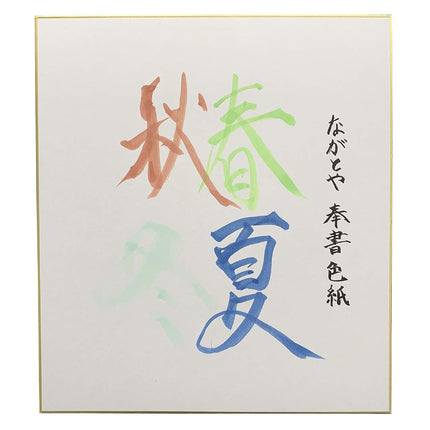 ながとや 奉書色紙
春夏
秋冬